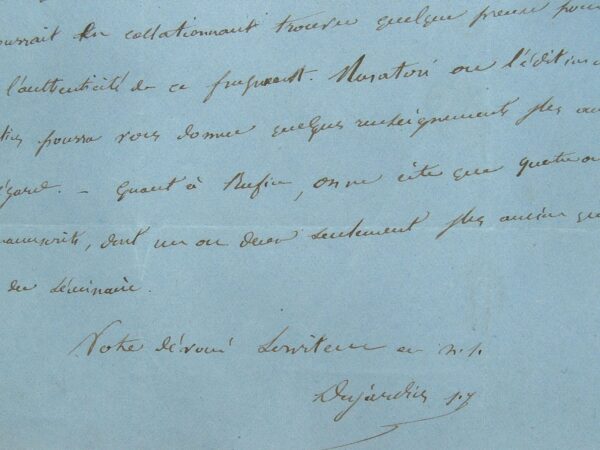 ourrait en collationnant trouver quelque preuve pour
l'authenticité de ce fragment. Muratori ou l'édition d
pourra vous donner quelques renseignements plus am
égard. – Quant à Rufin, on ne cite que quatre ou
manuscrits, dont un ou deux seulement plus ancien que
du Séminaire.
Votre dévoué serviteur en n.s.
Dujardin s.j.